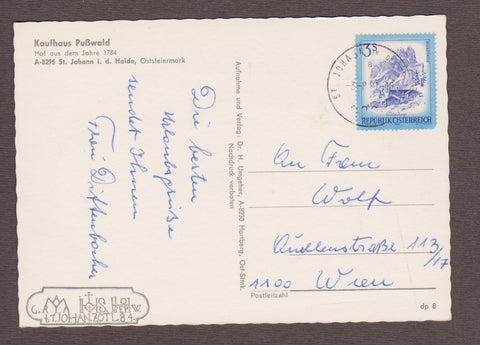 Kaufhaus Pußwald
Hof aus dem Jahre 1784
A-8295 St. Johann i. d. Haide, Oststeiermark
Die besten
Urlaubsgrüße
sendet Ihnen
Aufnahme und Verlag: Dr. H. Umgeher, A-8230 Hartberg, Ost-Stmk.
Nachdruck verboten
ST. JOHANN
3S
REPUBLIK ÖSTERREICH
An Fam
Wolf
Quellenstraße 113/17
1100 Wien
Postleitzahl
dp 8